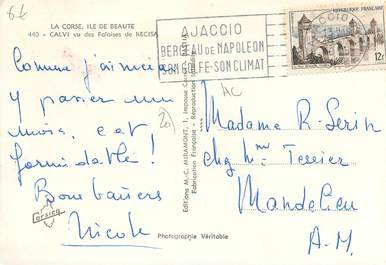 LA CORSE, ILE DE BEAUTE
440 - CALVI vu des Falaises de RECISA
AJACCIO
BERCEAU de NAPOLEON
SON GOLFE-SON CLIMAT
12F
Comme j'aimerai
y passer un
mois, c'est
formidable !
Bons baisers
Nicole
Corsica
Photographie Véritable
Editions M.-C. MIRAMONT, 1, Impasse
Fabrication Française - Reproduction
AC
Madame R. Serin
chez Mme Tessier
Mandelieu
A.-M.